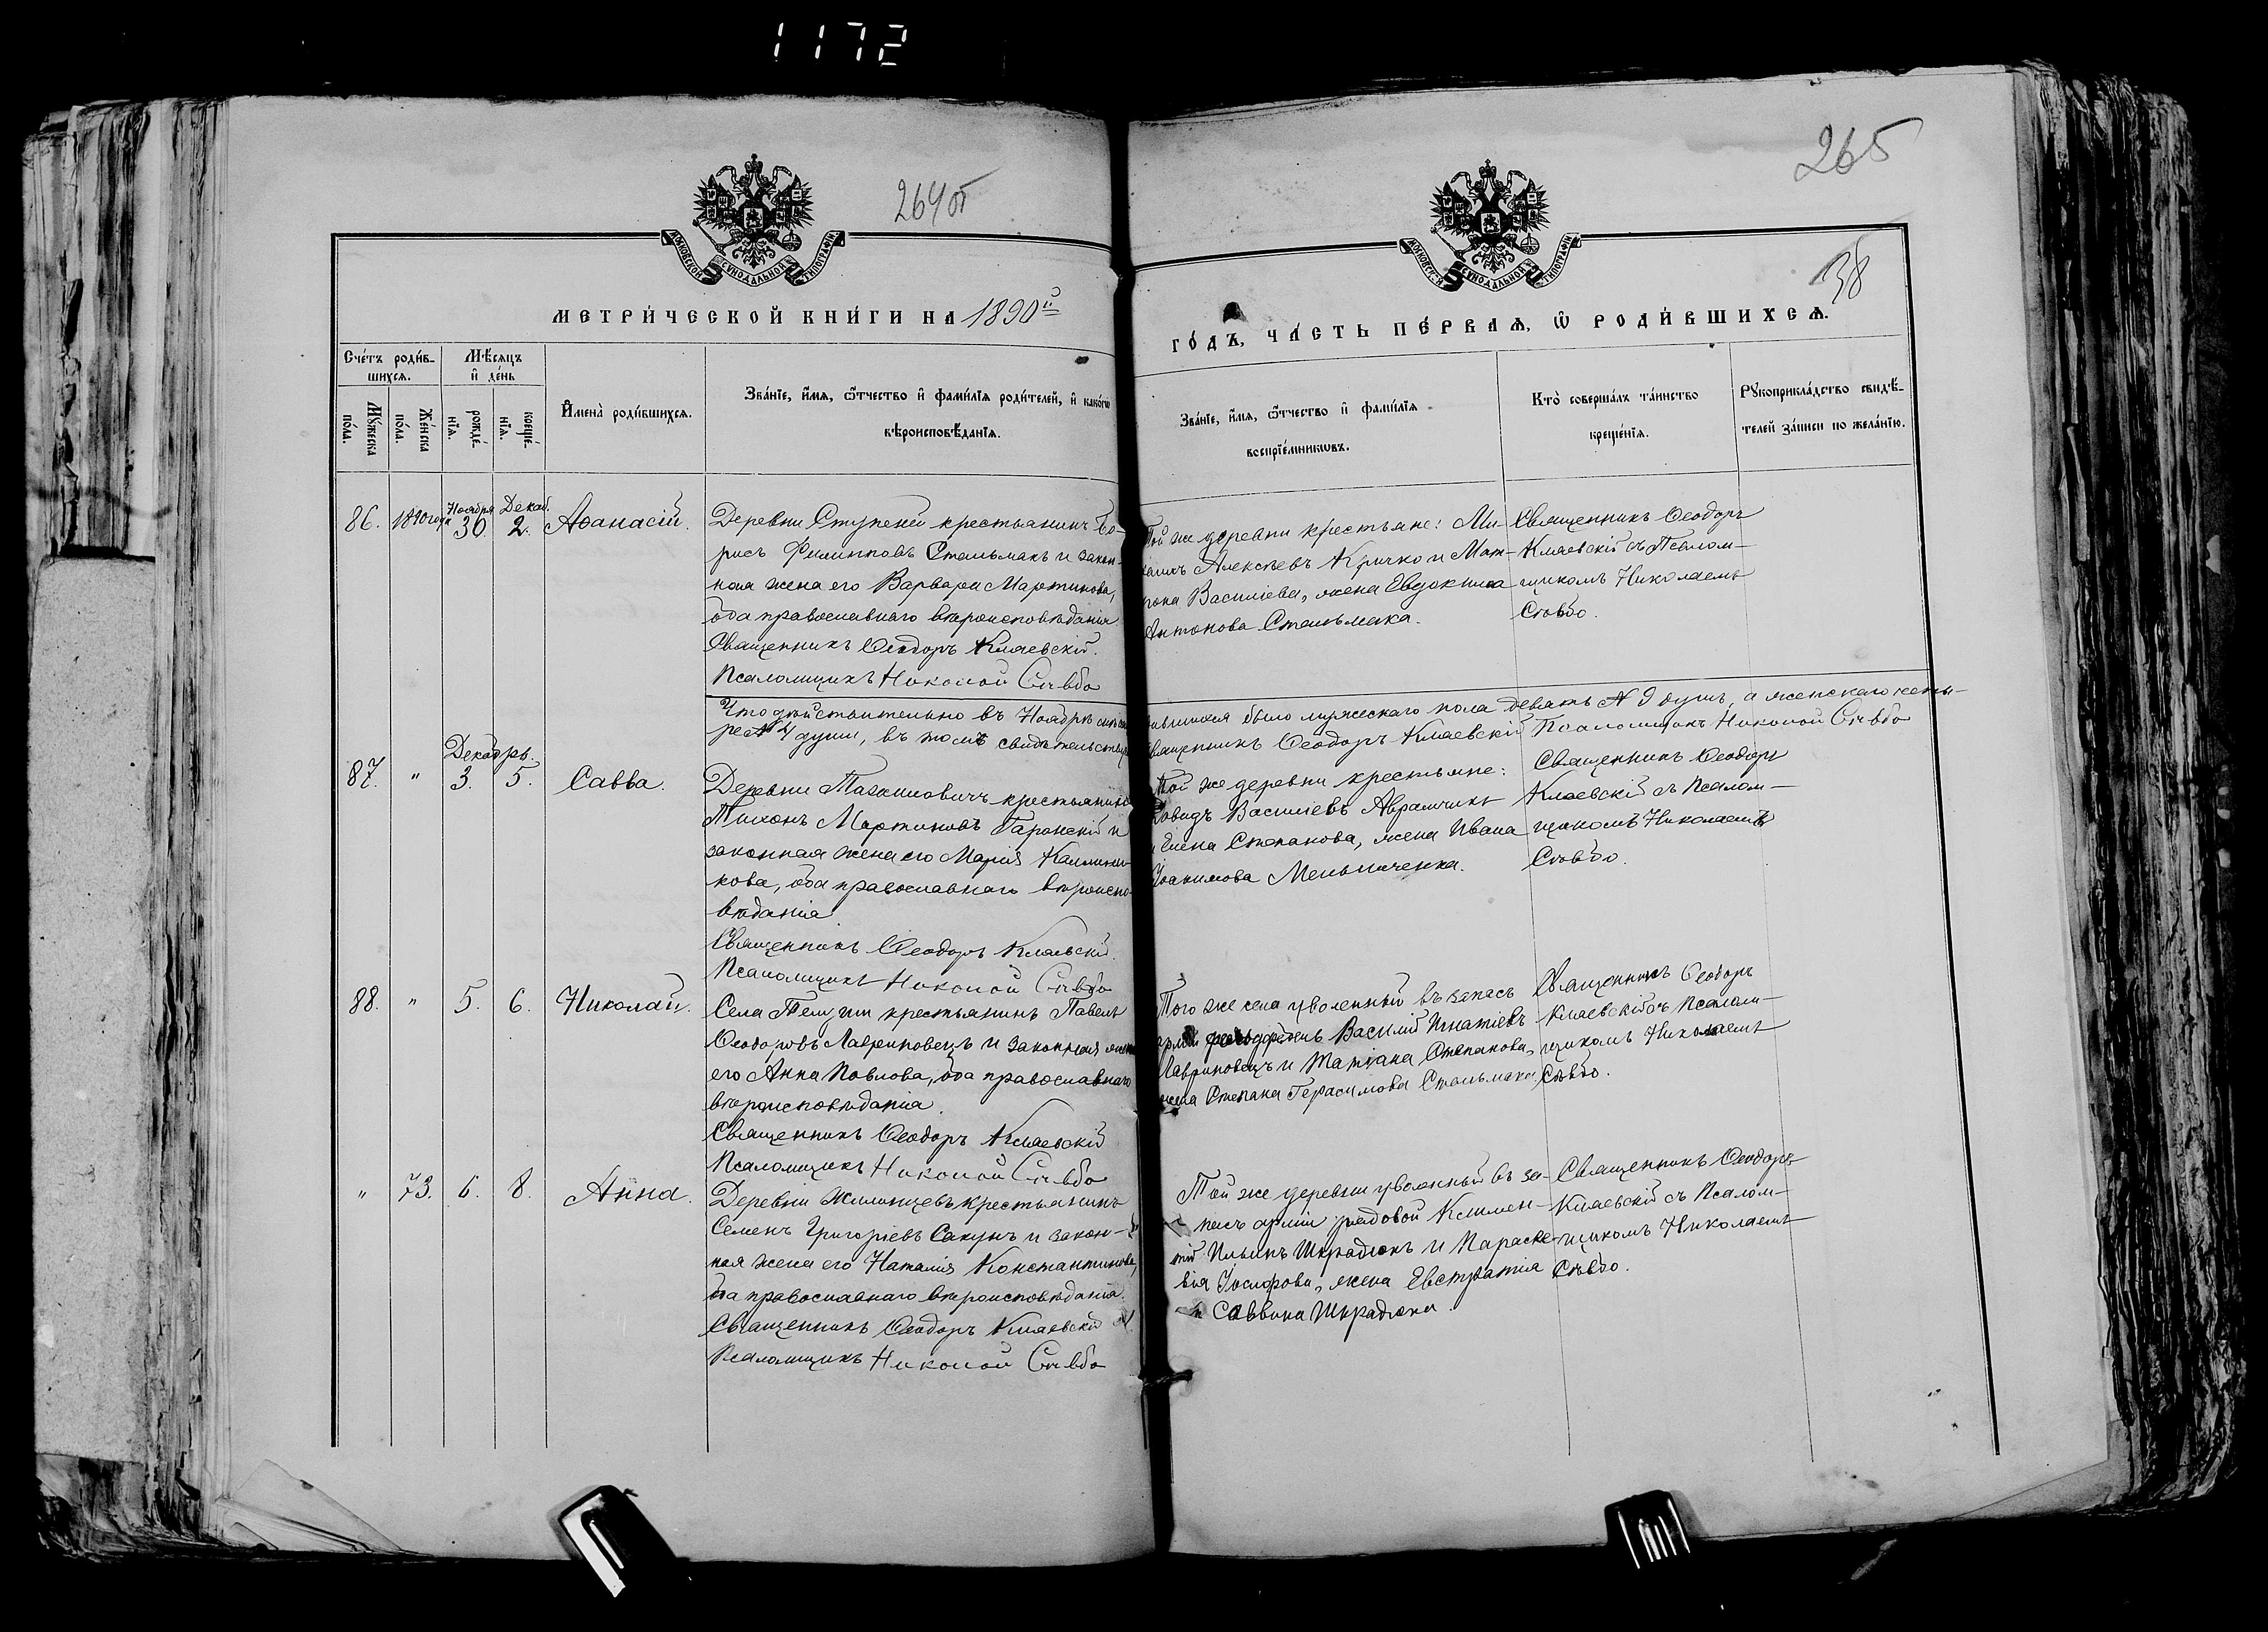 1172
264об
265
38
МОСКОВСКОЙ СѴНОДАЛЬНОЙ ТИПОГРАФІИ
МОСКОВСКОЙ СѴНОДАЛЬНОЙ ТИПОГРАФІИ
МЕТРИ́ЧЕСКОЙ КНИ́ГИ НА 1890й
ГО́ДЪ, ЧА́СТЬ ПЕ́РВАѦ, Ѽ РОДИ́ВШИХСѦ.
Сче́тъ роди́в-
шихсѧ.
Мѣ́сѧцъ
и҆ де́нь
Мꙋ́жеска
по́ла.
Же́нска
по́ла.
рожде́-
нїѧ.
креще́-
нїѧ.
И҆мена̀ роди́вшихсѧ.
Зва́нїе, и҆́мѧ, ѻ҆́тчество и҆ фами́лїѧ роди́телей, и҆ како́гѡ
вѣроисповѣ́данїѧ.
Зва́нїе, и҆́мѧ, ѻ҆́тчество и҆ фами́лїѧ
воспрїе́мникѡвъ.
Кто̀ соверша́лъ та́инство
креще́нїѧ.
Рꙋкоприкла́дство свидѣ́-
телей за́писи по жела́нїю.
86. 1890 года Ноября 30 Декаб. 2. Аѳанасій.
Деревни Ступеней крестьянинъ Бо-
рисъ Филипповъ Стельмахъ и закон-
ная жена его Варвара Мартинова,
оба православнаго вѣроисповѣданія.
Священникъ Ѳеодоръ Кляевскій.
Псаломщикъ Николай Сѣвбо
Той же деревни крестьяне: Ми-
хаилъ Алексѣевъ Кричко и Мат-
рона Василіева, жена Евдокима
Антонова Стельмаха.
Священникъ Ѳеодоръ
Кляевскій съ Псалом-
щикомъ Николаемъ
Сѣвбо.
Что дѣйствительно въ Ноябрѣ было мужескаго пола девять № 9 душъ, а женскаго четы-
ре № 4 души, въ томъ Священникъ Ѳеодоръ Кляевскій Псаломщикъ Николай Сѣвбо
87. " Декабрь. 3. 5. Савва.
Деревни крестьянинъ
Тихонъ Мартиновъ Гаронскій и
законная жена его Марія Каллини-
кова, оба православнаго вѣроиспо-
вѣданія
Священникъ Ѳеодоръ Кляевскій.
Псаломщикъ Николай Сѣвбо
Той же деревни крестьяне:
Давидъ Василіевъ Аврамчикъ
и Елена Степанова, жена Ивана
Іоакимова Мельниченка.
Священникъ Ѳеодоръ
Кляевскій съ Псалом-
щикомъ Николаемъ
Сѣвбо.
88. " 5. 6. Николай.
Села крестьянинъ Павелъ
Ѳеодоровъ Лавриновецъ и законная жена
его Анна Павлова, оба православнаго
вѣроисповѣданія.
Священникъ Ѳеодоръ Кляевскій
Псаломщикъ Николай Сѣвбо
Того же села уволенный въ запасъ
арміи Василій Игнатіевъ
Лавриновецъ и Татіана Степанова,
жена Степана Герасимова Стельмаха.
Священникъ Ѳеодоръ
Кляевскій съ Псалом-
щикомъ Николаемъ
Сѣвбо.
" 73. 6. 8. Анна.
Деревни Жилинцевъ крестьянинъ
Семенъ Григоріевъ Сакунъ и закон-
ная жена его Наталія Константинова,
оба православнаго вѣроисповѣданія.
Священникъ Ѳеодоръ Кляевскій
Псаломщикъ Николай Сѣвбо
Той же деревни уволенный въ за-
пасъ арміи рядовой Климен-
тій Ильинъ Шкрадюкъ и Параске-
вія Іосифова, жена Евстратія
Саввина Шкрадюка.
Священникъ Ѳеодоръ
Кляевскій съ Псалом-
щикомъ Николаемъ
Сѣвбо.